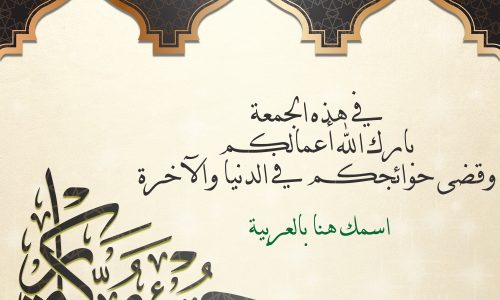 في هذه الجمعة
بارك الله أعمالكم
وقضى حوائجكم في الدنيا والآخرة
اسمك هنا بالعربية